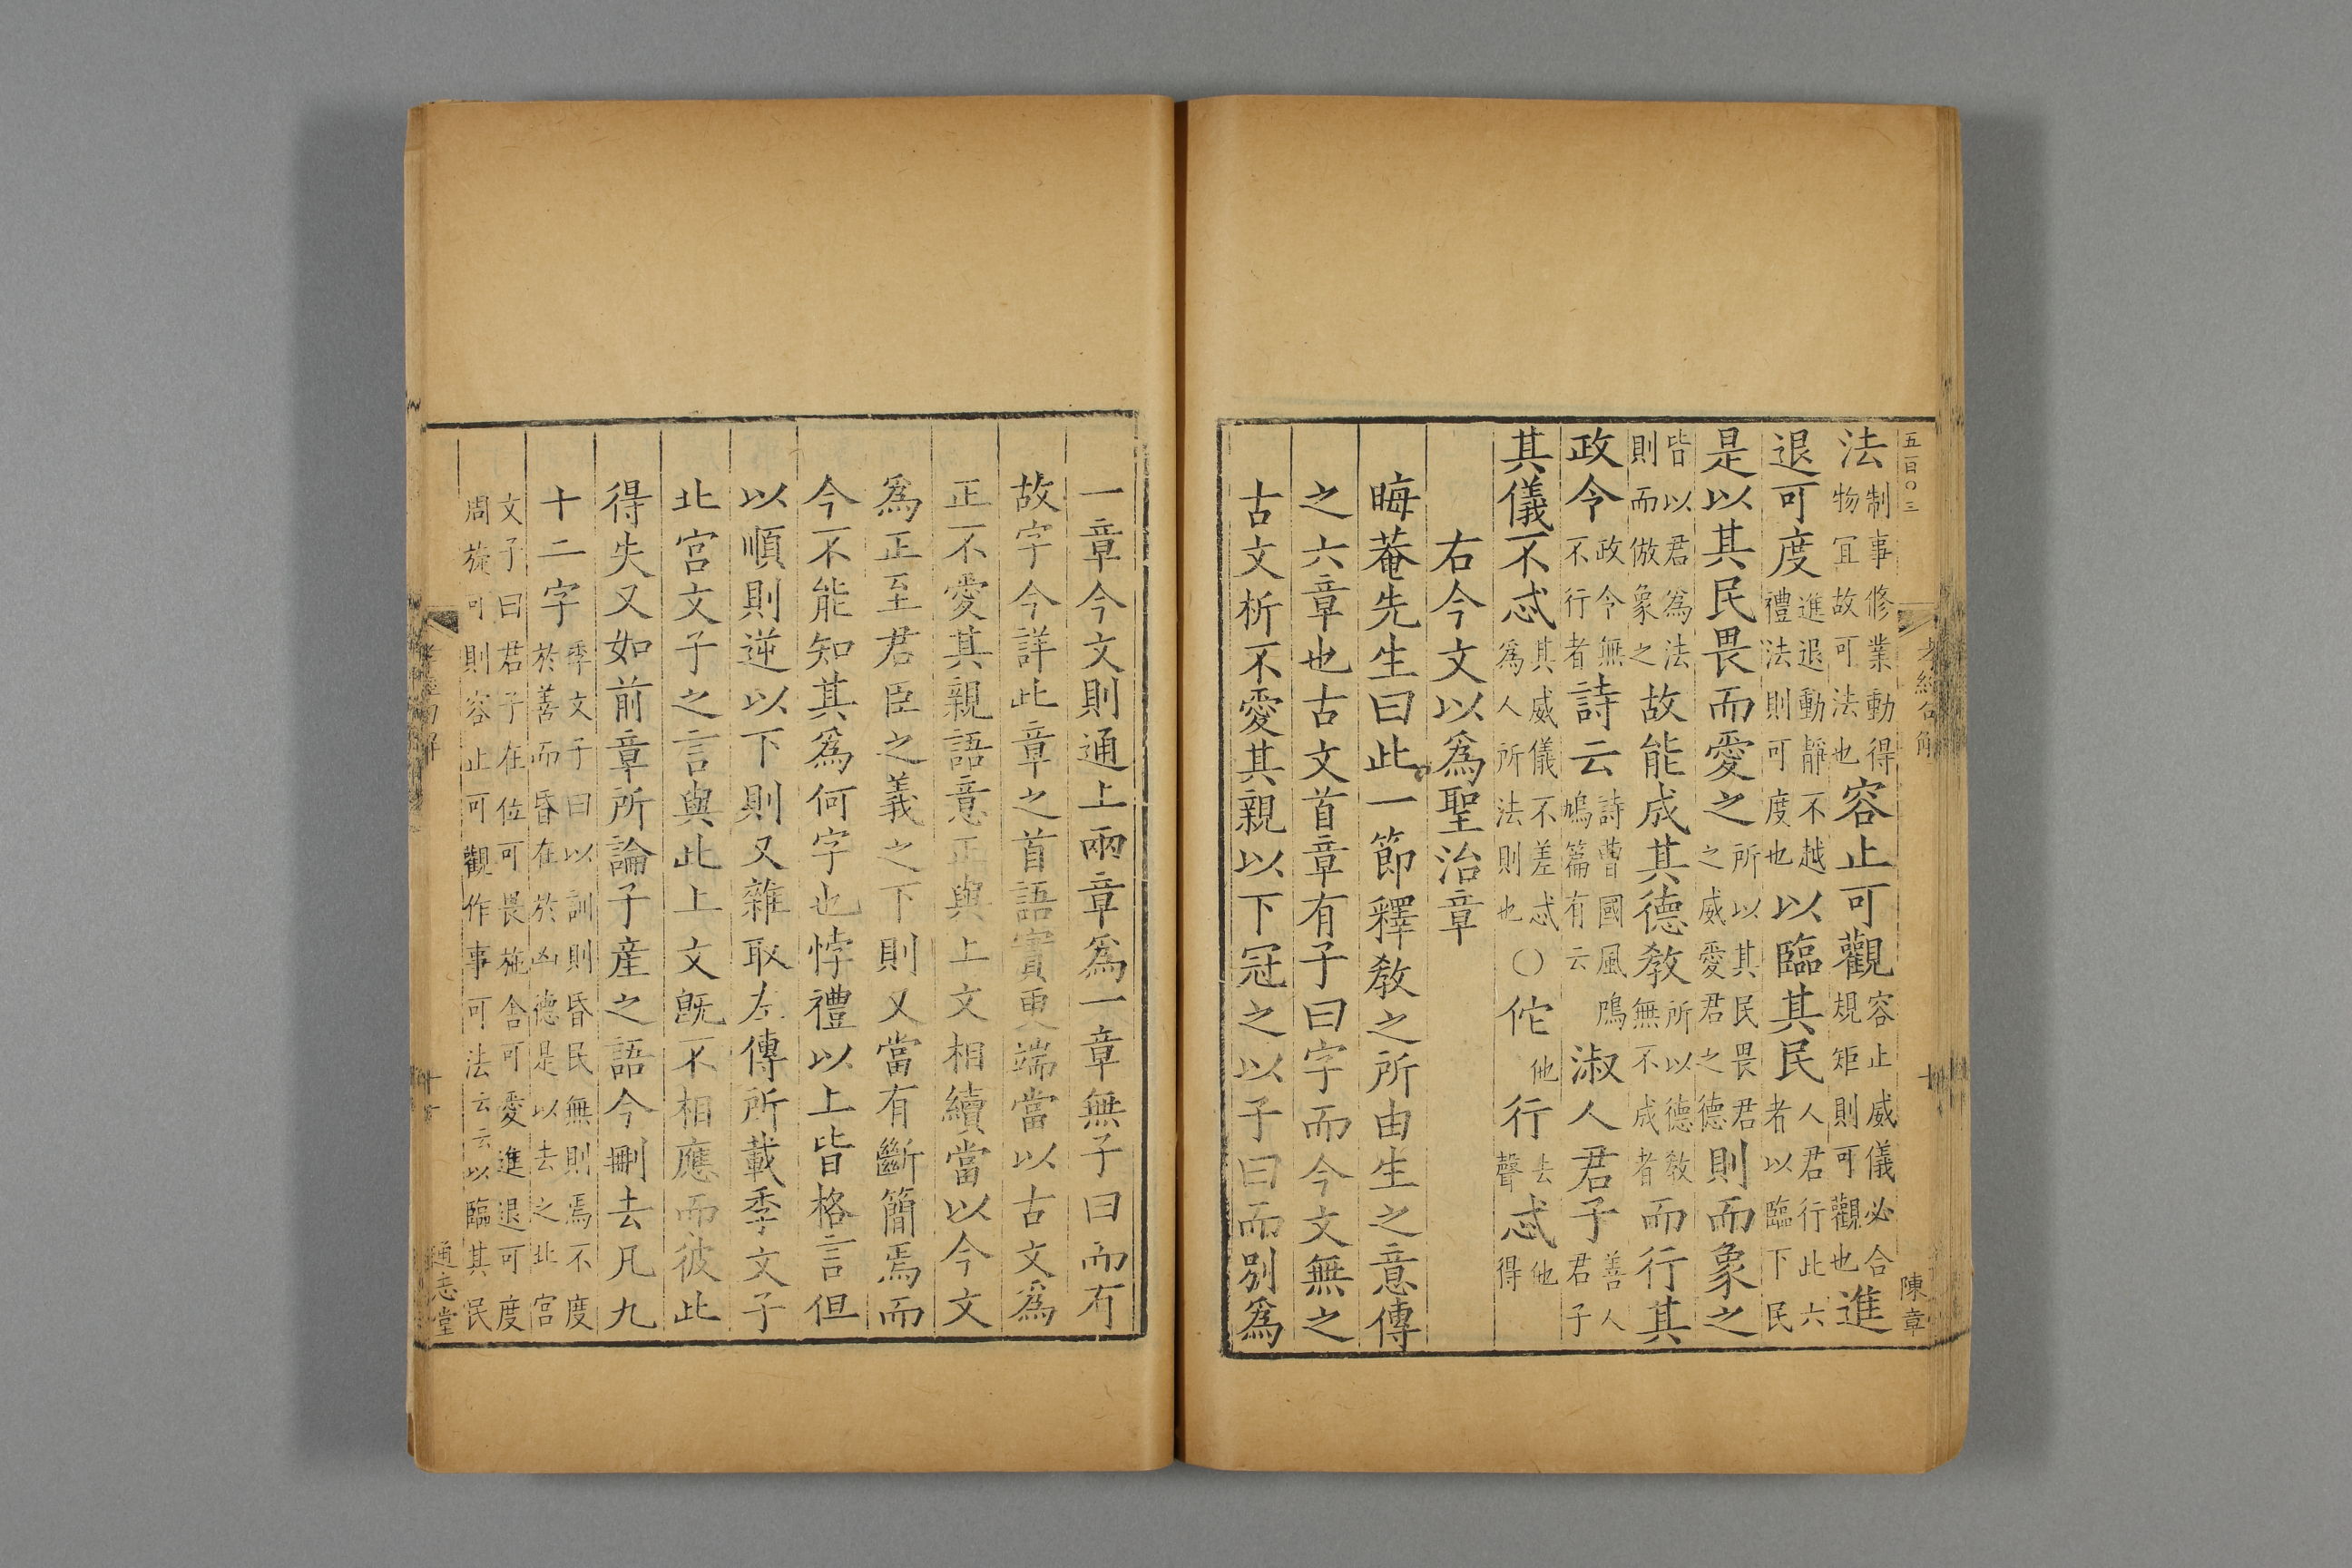 五百〇三
法制事修業動得物宜故可法也容止可觀容止威儀必合規矩則可觀也進
退可度進退動靜不越禮法則可度也以臨其民人君行此六者以臨下民
是以其民畏而愛之所以其民畏君之威愛君之德則而象之
皆以君爲法則而倣象之故能成其德敎所以德敎無不成者而行其
政令政令無不行者詩云詩曹國風鳲鳩篇有云淑人君子善人君子
其儀不忒其威儀不差忒爲人所法則也〇佗他行去聲忒他得
右今文以爲聖治章
晦菴先生曰此一節釋敎之所由生之意傳
之六章也古文首章有子曰字而今文無之
古文析不愛其親以下冠之以子曰而別爲
陳章
一章今文則通上兩章爲一章無子曰而有
故字今詳此章之首語實更端當以古文爲
正不愛其親語意正與上文相續當以今文
爲正至君臣之義之下則又當有斷簡焉而
今不能知其爲何字也悖禮以上皆格言但
以順則逆以下則又雜取左傳所載季文子
北宮文子之言與此上文旣不相應而彼此
得失又如前章所論子産之語今刪去凡九
十二字季文子曰以訓則昏民無則焉不度於善而昏在於凶德是以去之北宮
文子曰君子在位可畏施舍可愛進退可度周旋可則容止可觀作事可法云云以臨其民
通志堂